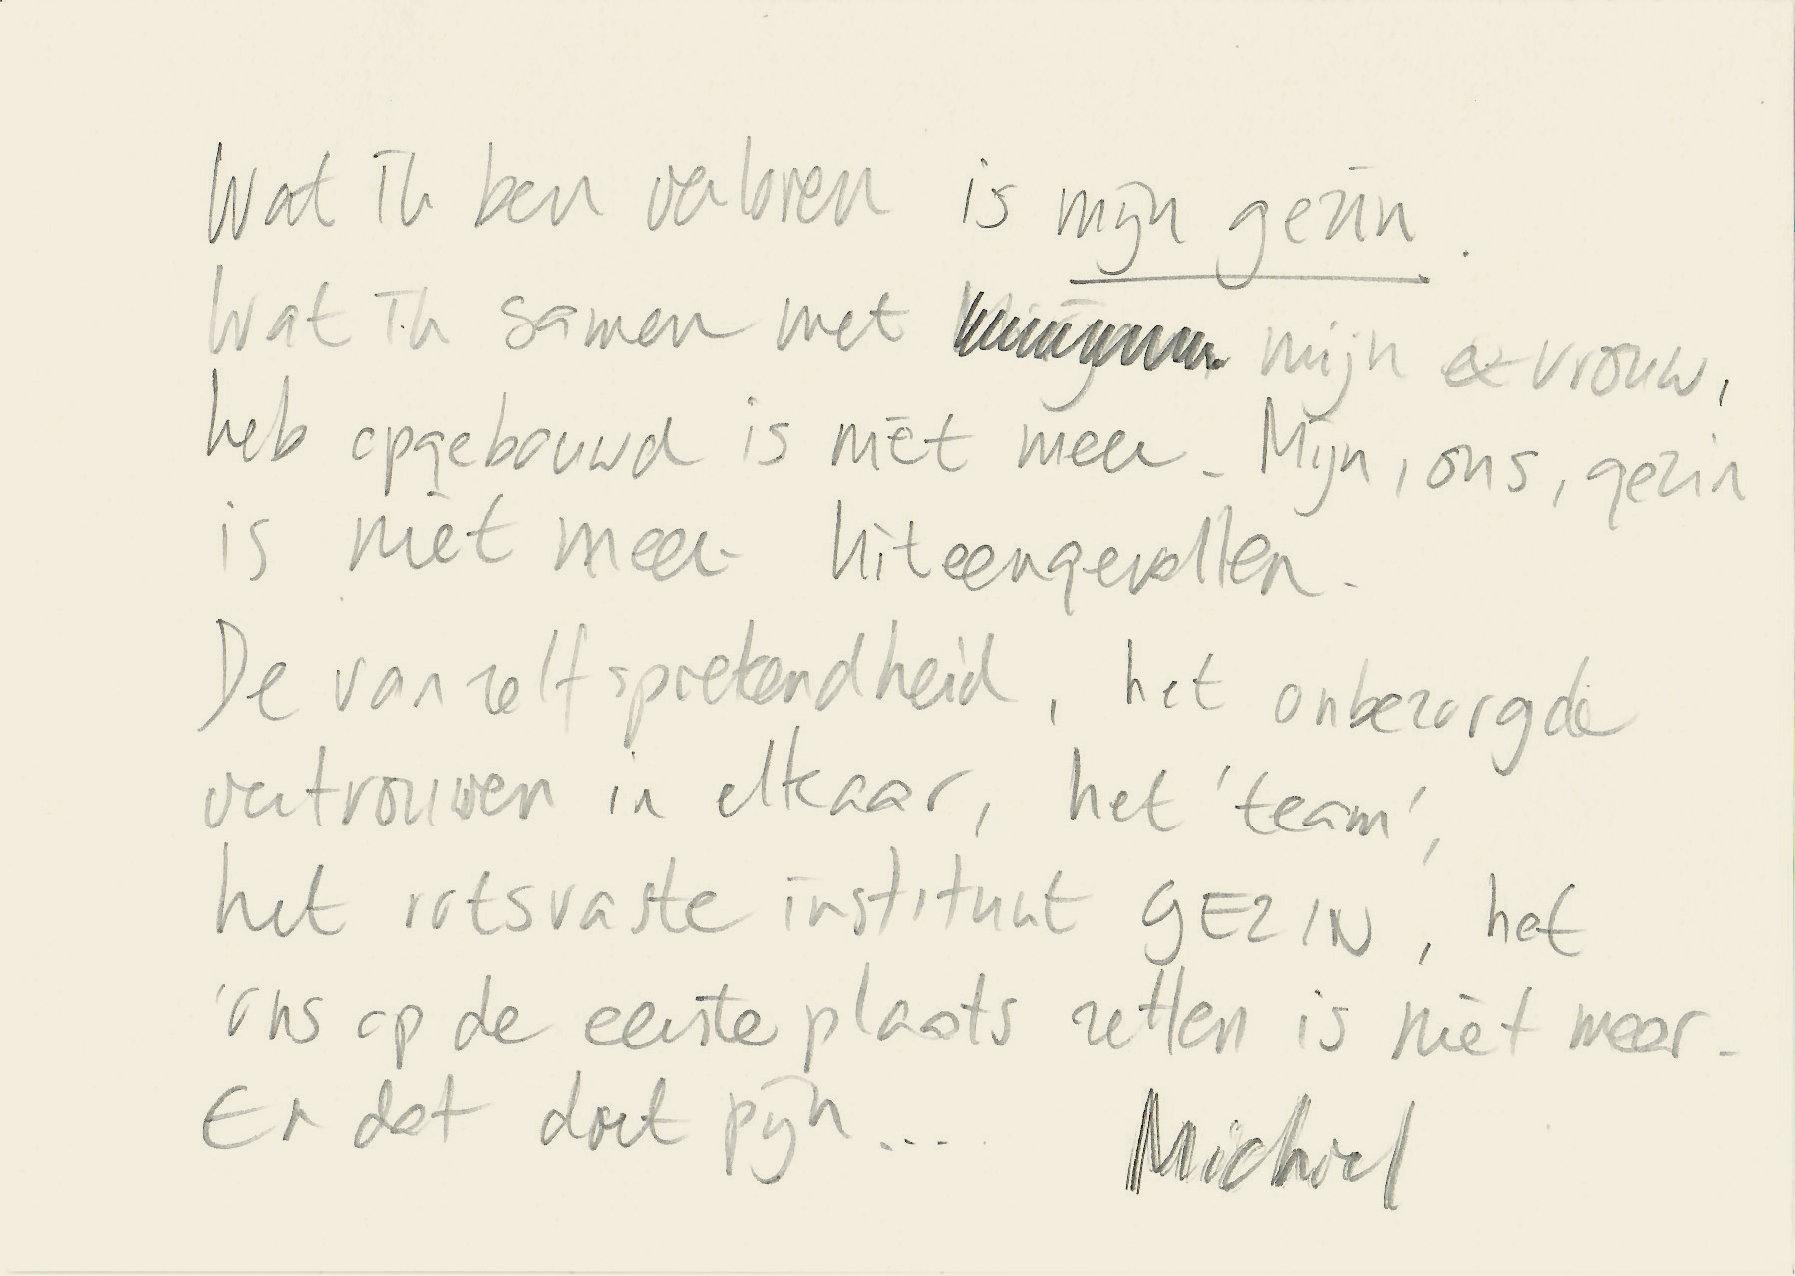 Wat ik ben verloren is mijn gezin.
Wat ik samen met mijn ex-vrouw,
heb opgebouwd is niet meer. Mijn, ons, gezin
is niet meer. Uiteengevallen.
De vanzelfsprekendheid, het onbezorgde
vertrouwen in elkaar, het 'team',
het rotsvaste instituut GEZIN, het
'ons op de eerste plaats zetten is niet meer.
En dat doet pijn....
Michiel